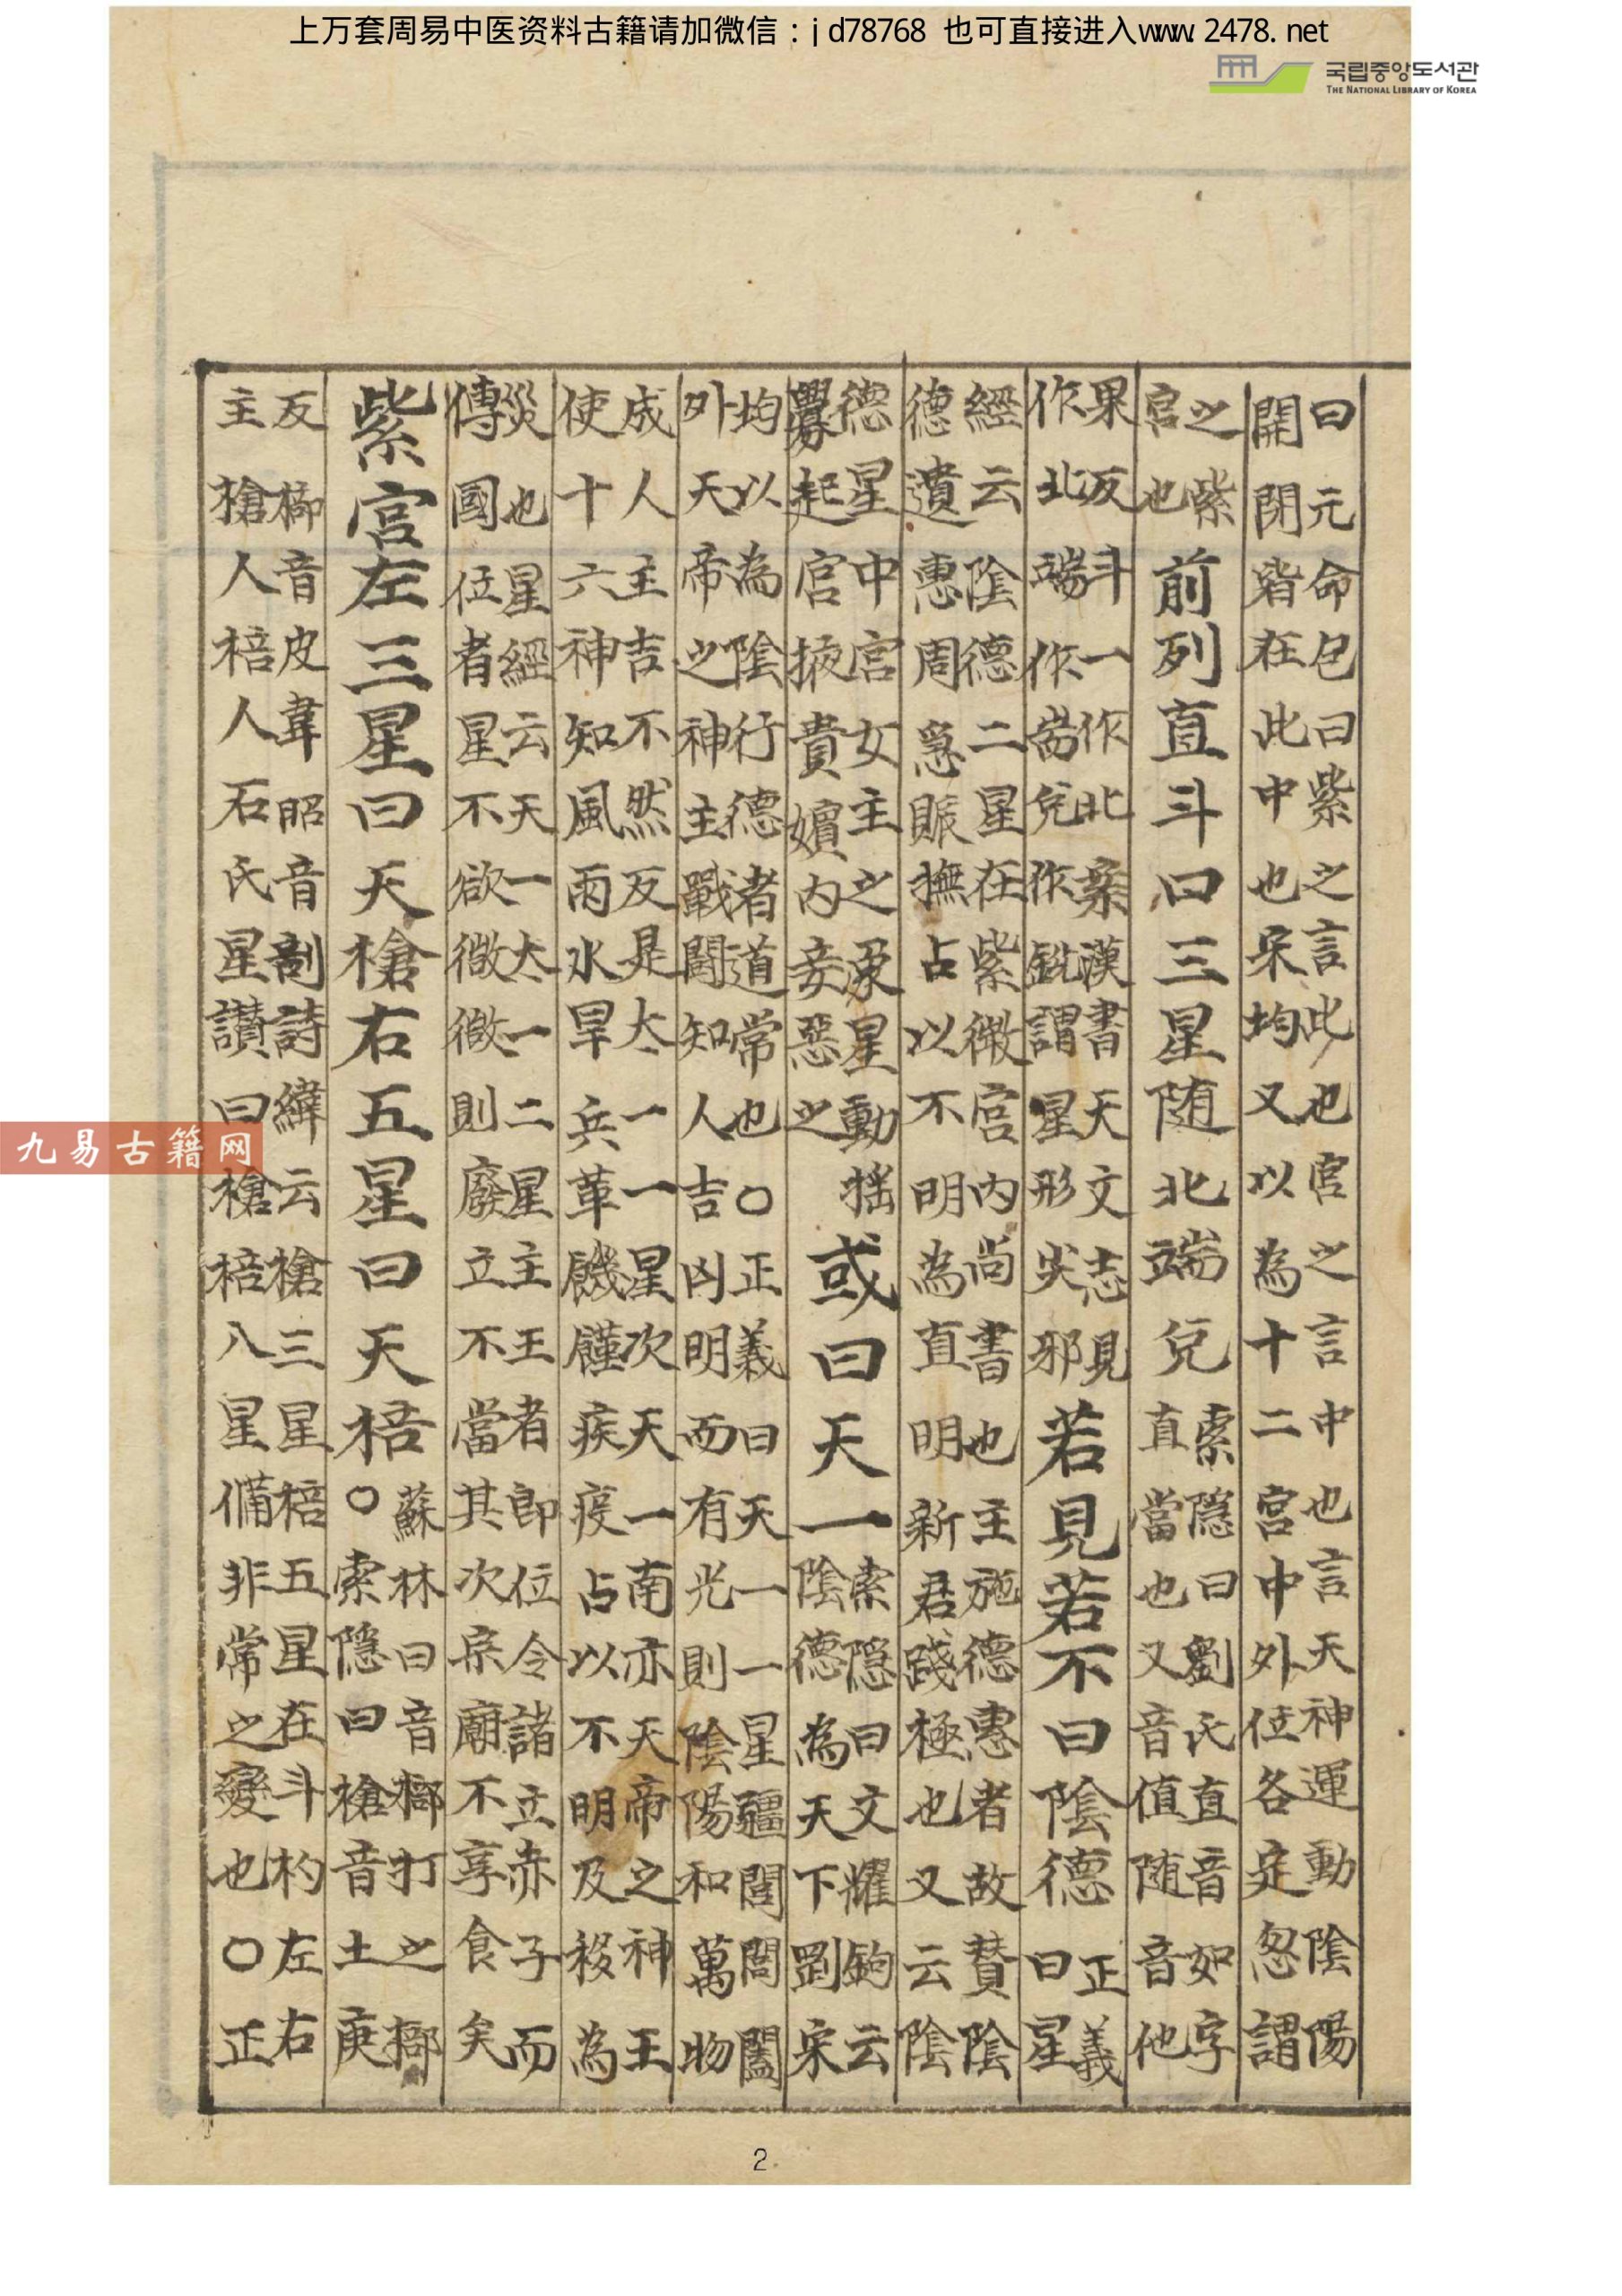 上万套周易中医资料古籍请加微信：jd78768 也可直接进入www.2478.net
국립중앙도서관
THE NATIONAL LIBRARY OF KOREA
曰元命包曰紫之言此也宮之言中也言天神運動陰陽
開閉皆在此中也宋均又以為十二宮中外位各定㹅謂
之紫
宮也
前列直斗口三星随北端兌
索隱曰劉氏直音如字
直當也又音值随音他
果反斗一作北案漢書天文志見
作北端作耑兌作銳謂星形尖邪
若見若不曰陰德
正義
曰星
經云陰德二星在紫微宮內尚書也主施德惠者故賛陰
德遺惠周急賑撫占以不明為直明新君踐極也又云陰
德星中宮女主之象星動搖
釁起宮掖貴嬪內妾惡之
或曰天一
索隱曰文耀鉤云
陰德為天下剛宋
均以為陰行德者道常也〇正義曰天一一星疆閶闔
外天帝之神主戰鬪知人吉凶明而有光則陰陽和萬物
成人主吉不然反是太一一星次天一南亦天帝之神主
使十六神知風雨水旱兵革饑饉疾疫占以不明及移為
災也星經云天一太一二星主王者即位令諸立赤子而
傳國位者星不欲微微則廢立不當其次宗廟不享食矣
紫宮左三星曰天槍右五星曰天棓〇
蘇林曰音榔打之榔
索隱曰槍音土庚
反榔音皮韋昭音剖詩緯云槍三星棓五星在斗杓左右
主槍人棓人石氏星讃曰槍棓八星備非常之變也〇正
九易古籍网
2